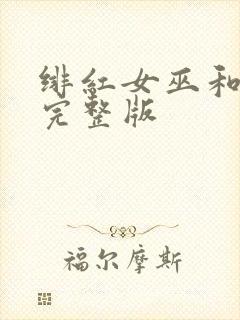 绯红女巫和
完整版
福尔摩斯